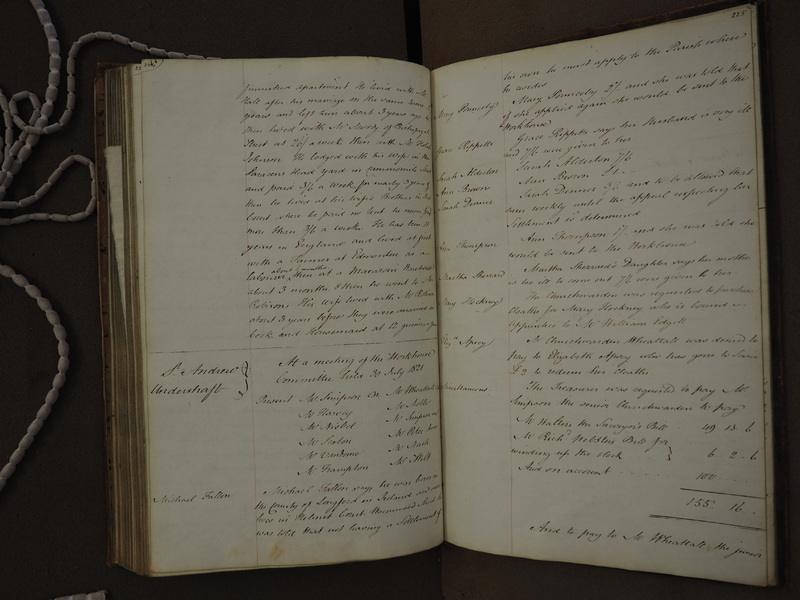 furnished apartment He lived with Mr
Hall after his marriage on the same terms
years and left him about 3 years ago
then lived with Mr Moody of Bishopsgate
Street at 26/ a week then with Mr
Johnson He lodged with his wife in the
Parsons Head yard in
and paid 3/6 a week for nearly 3 years
then he lived at his wife's Brothers in
Court where he paid no rent he never paid
more than 3/6 a week He has been 11
years in England and lived at first
with a Farmer at Edmonton as a
labourer about 3 months then at a Macaroni
about 3 months & then he went to Mr
Robisons His wife lived with Mr
about 3 years before they were married as
Cook and Housemaid at 12 guineas a
St. Andrew
Undershaft
At a meeting of the Workhouse
Committee held 30 July 1821
Present Mr Simpson CW Mr Wheattall
Mr Harvey
Mr Nisbet Mr Simpson
Mr Peter
Mr Vandome Mr Nash
Mr Frampton
Michael Fallon
Michael Fallon says he was born in
the County of Longford in Ireland and now
lives in Helmet Court Wormwood Street he
was told that not having a Settlement of
225
his own he must apply to the Parish where
he resides
Mary Ponsonby
Mary Ponsonby 2/ and she was told that
if she applied again she would be sent to the
Workhouse
Grace Rippetts
Grace Rippetts says her Husband is very ill
and 7/6 were given to her
Sarah Alderton
Sarah Alderton 7/6
Ann Brown
Ann Brown 5/-
Sarah Denner
Sarah Denner 3/6 and to be allowed that
sum weekly until the appeal respecting her
Settlement is determined
Ann Thompson
Ann Thompson 1/ and she was told she
would be sent to the Workhouse
Martha Sherrard
Martha Sherrard's Daughter says her mother
is too ill to come out 7/6 were given to her
Mary Hockney
The Churchwarden was requested to purchase
Cloaths for Mary Hockney who is bound
Apprentice to Mr William Edgell
Elizth Apney
Mr Churchwarden Wheattall was desired to
pay to Elizabeth Apney who has gone to Service
£2 to redeem her Cloaths
Miscellaneous
The Treasurer was requested to pay Mr
Simpson the senior Churchwarden to pay
Mr Walters the Surveyors Bill 49 13 6
Mr Richd Webster Bill for
winding up the clock } 6 2 6
And on account 100
155 16 -
And to pay to Mr Wheattall the junior